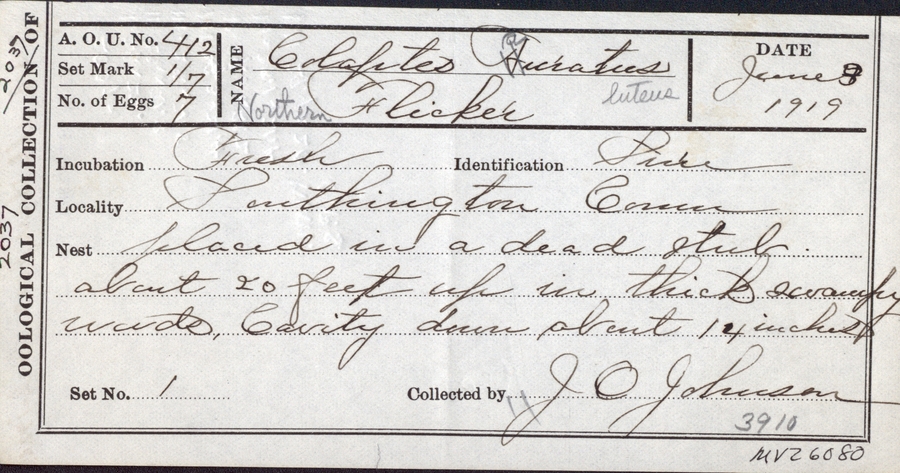 OOLOGICAL COLLECTION OF
2037
2037
A. O. U. No. 412
Set Mark 1/7
No. of Eggs 7
NAME Colaptes Auratus
luteus
Northern Flicker
DATE
June 8
1919
Incubation Fresh Identification Sure
Locality Southington Conn
Nest placed in a dead stub.
about 20 feet up in thick swampy
woods, Cavity down about 14 inches
Set No. 1 Collected by J O Johnson
3910
MVZ 6080